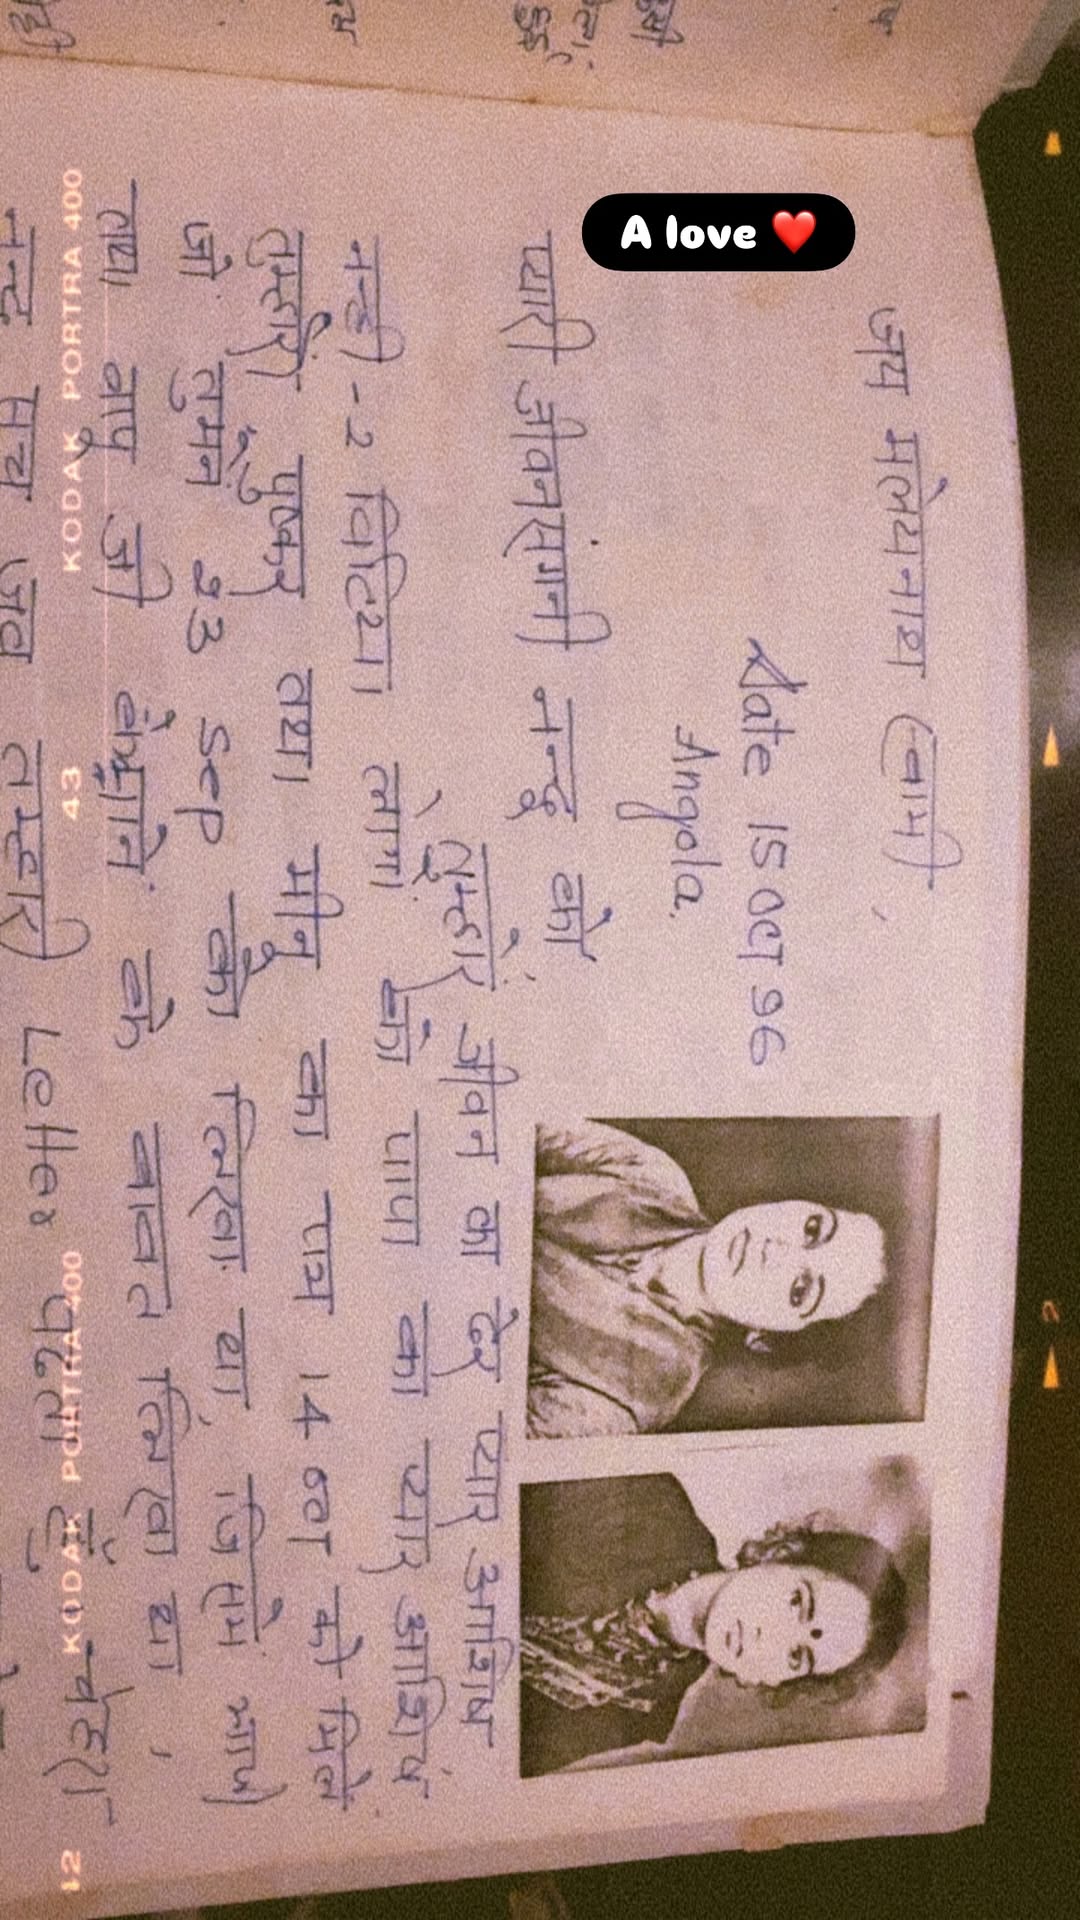 A love ❤️
जय मलेयनाथ स्वामी,
Date 15 OCT 96
Angola.
प्यारी जीवनसंगनी नन्दू को
तुम्हारे जीवन का ढेर प्यार आशिष
नन्ही-2 बिटिया लोगा को पापा का प्यार आशिष
तुम्हारे पुष्कर तथा मीनू का पत्र 14 ता को मिले
जो तुमने 23 Sep को लिखा था, जिसमें भाभी
तथा बापू जी के बावत लिखा था,
नन्दू सच जब तुम्हारी Letter पढता हूँ चेहरा
KODAK PORTRA 400
43
KODAK PORTRA 400
12
2